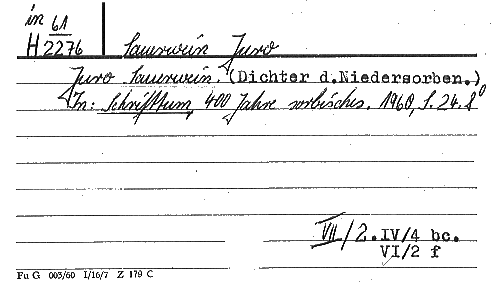 in 61
H 2276 Sauerwein Juro
Juro Sauerwein. (Dichter d.Niedersorben.)
In: Schrifttum, 400 Jahre sorbisches. 1960, S. 24. 8°
VII/2. IV/4 bc.
VI/2 f
Fu G 005/60 I/16/7 Z 179 C